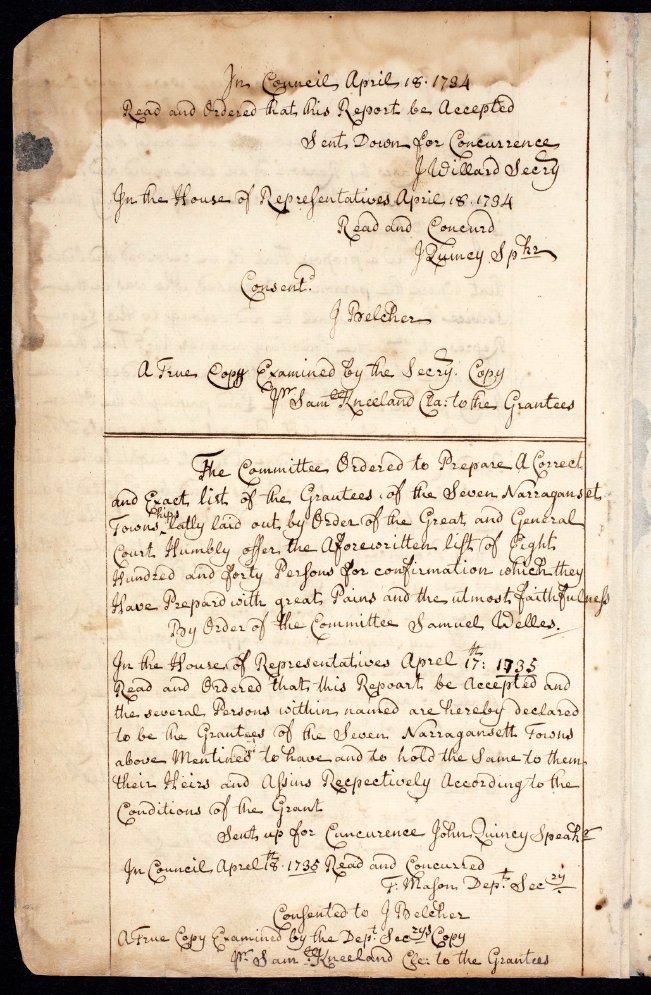 In Council April 18. 1734
Read and Ordered that this Report be Accepted
Sent Down for Concurrence
J Willard Secry
In the House of Representatives April 18. 1734
Read and Concurd
J Quincy Spkr
Consentd
J Belcher
A True Copy Examined by the Secry. Copy
Pr Saml Kneeland Cla: to the Grantees
The Committee Ordered to Prepare A Correct
and Exact list of the Grantees of the Seven Narraganset
Towns^hips latly laid out by Order of the Great and General
Court Humbly offer the Aforewritten list of Eight
Hundred and forty Persons for confirmation which they
Have Prepard with great Pains and the utmost faithfulness
By Order of the Committee Samuel Welles.
In the House of Representatives Aprel 17th: 1735
Read and Ordered that this Repoart be Accepted and
the several Persons within named are hereby declared
to be the Grantees of the Seven Narraganseth Towns
above Mentined to have and to hold the Same to them
their Heirs and Assins Respectively According to the
Conditions of the Grant
Sent up for Cuncurence John Quincy Speakr
In Council Aprel 18th. 1735 Read and Concurred
T: Mason Dept. Secry
Consented to J Belcher
A True Copy Examined by the Dept Secrys Copy
Pr Saml Kneeland Cle: to the Grantees